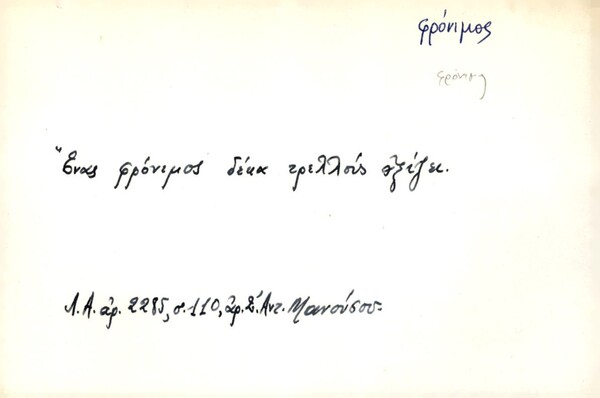 φρόνιμος
φρόνιμος
Ἕνας φρόνεμος δέκα τρελλούς ἀξίζει.
Λ.Α. ἀρ. 2285, σ. 110, ἀρ. Σ. Ἀντ. Μανούσου